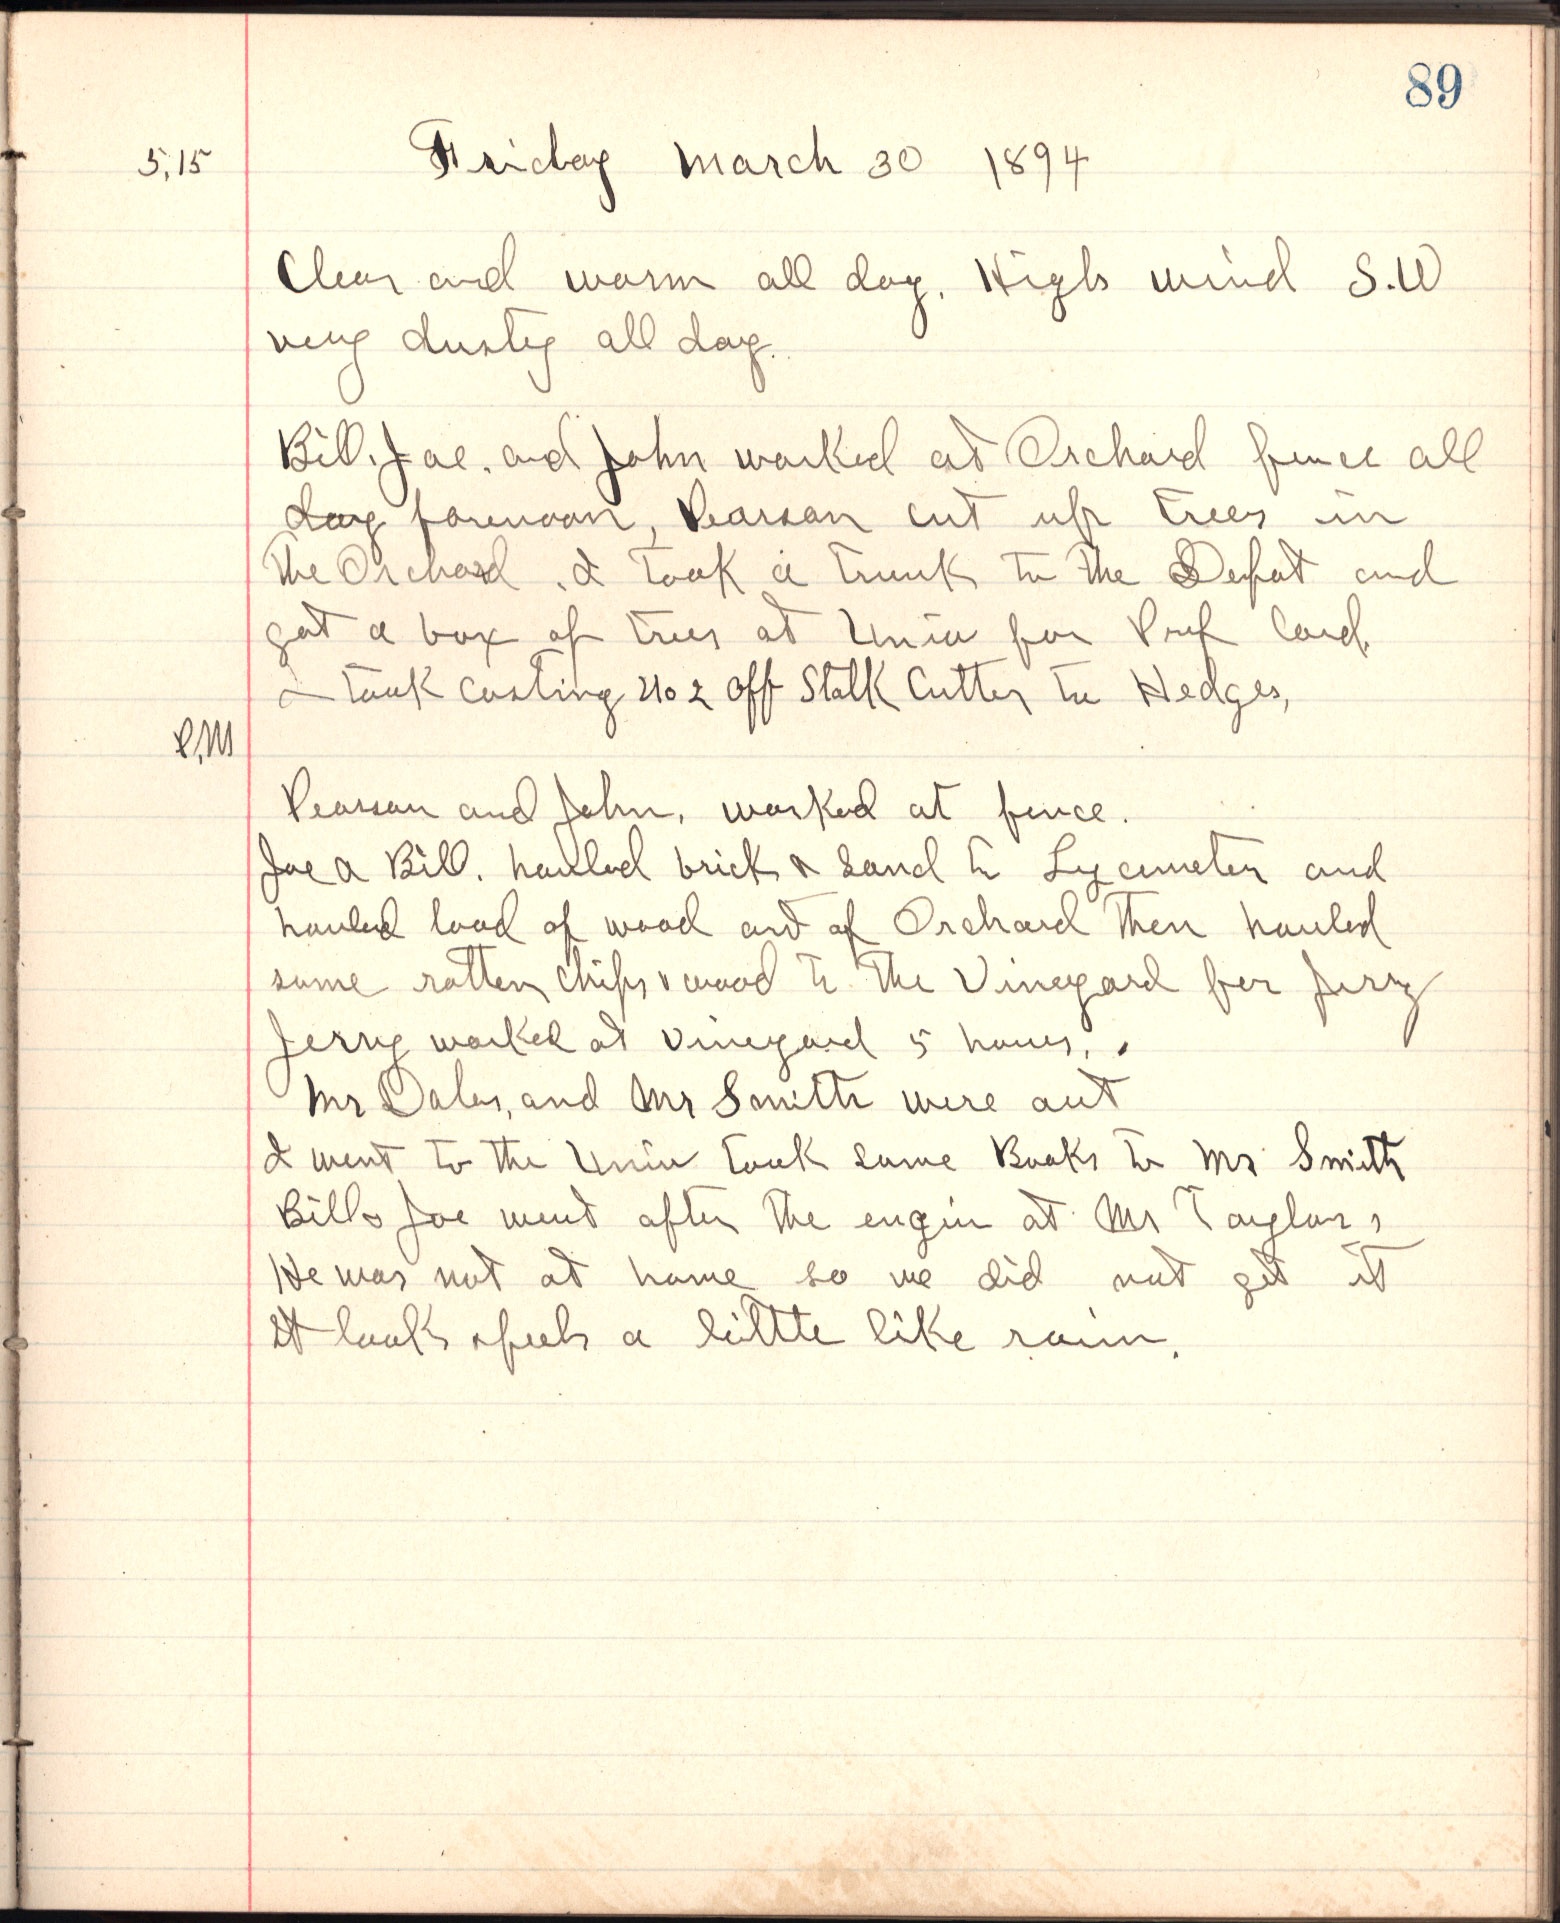 89
5,15 Friday March 30 1894
Clear and warm all day. High wind S.W
very dusty all day.
Bill. Joe. and John worked at Orchard fence all
day forenoon, Pearson cut up trees in
the Orchard. I took a trunk to the Depot and
got a box of trees at Univ for Prof Card.
I took casting No 2 off Stalk Cutter to Hedges,
P,M
Pearson and John, worked at fence.
Joe & Bill. hauled brick & sand to Lycemeter and
hauled load of wood out of Orchard then hauled
some rotten chips & wood to the Vineyard for Jerry
Jerry worked at vineyard 5 hours.
Mr Dales, and Mr Smith were out
I went to the Univ took some Books to Mr Smith
Bill & Joe went after the engin at Mr Taylors,
He was not at home so we did not get it
it looks & feels a little like rain.